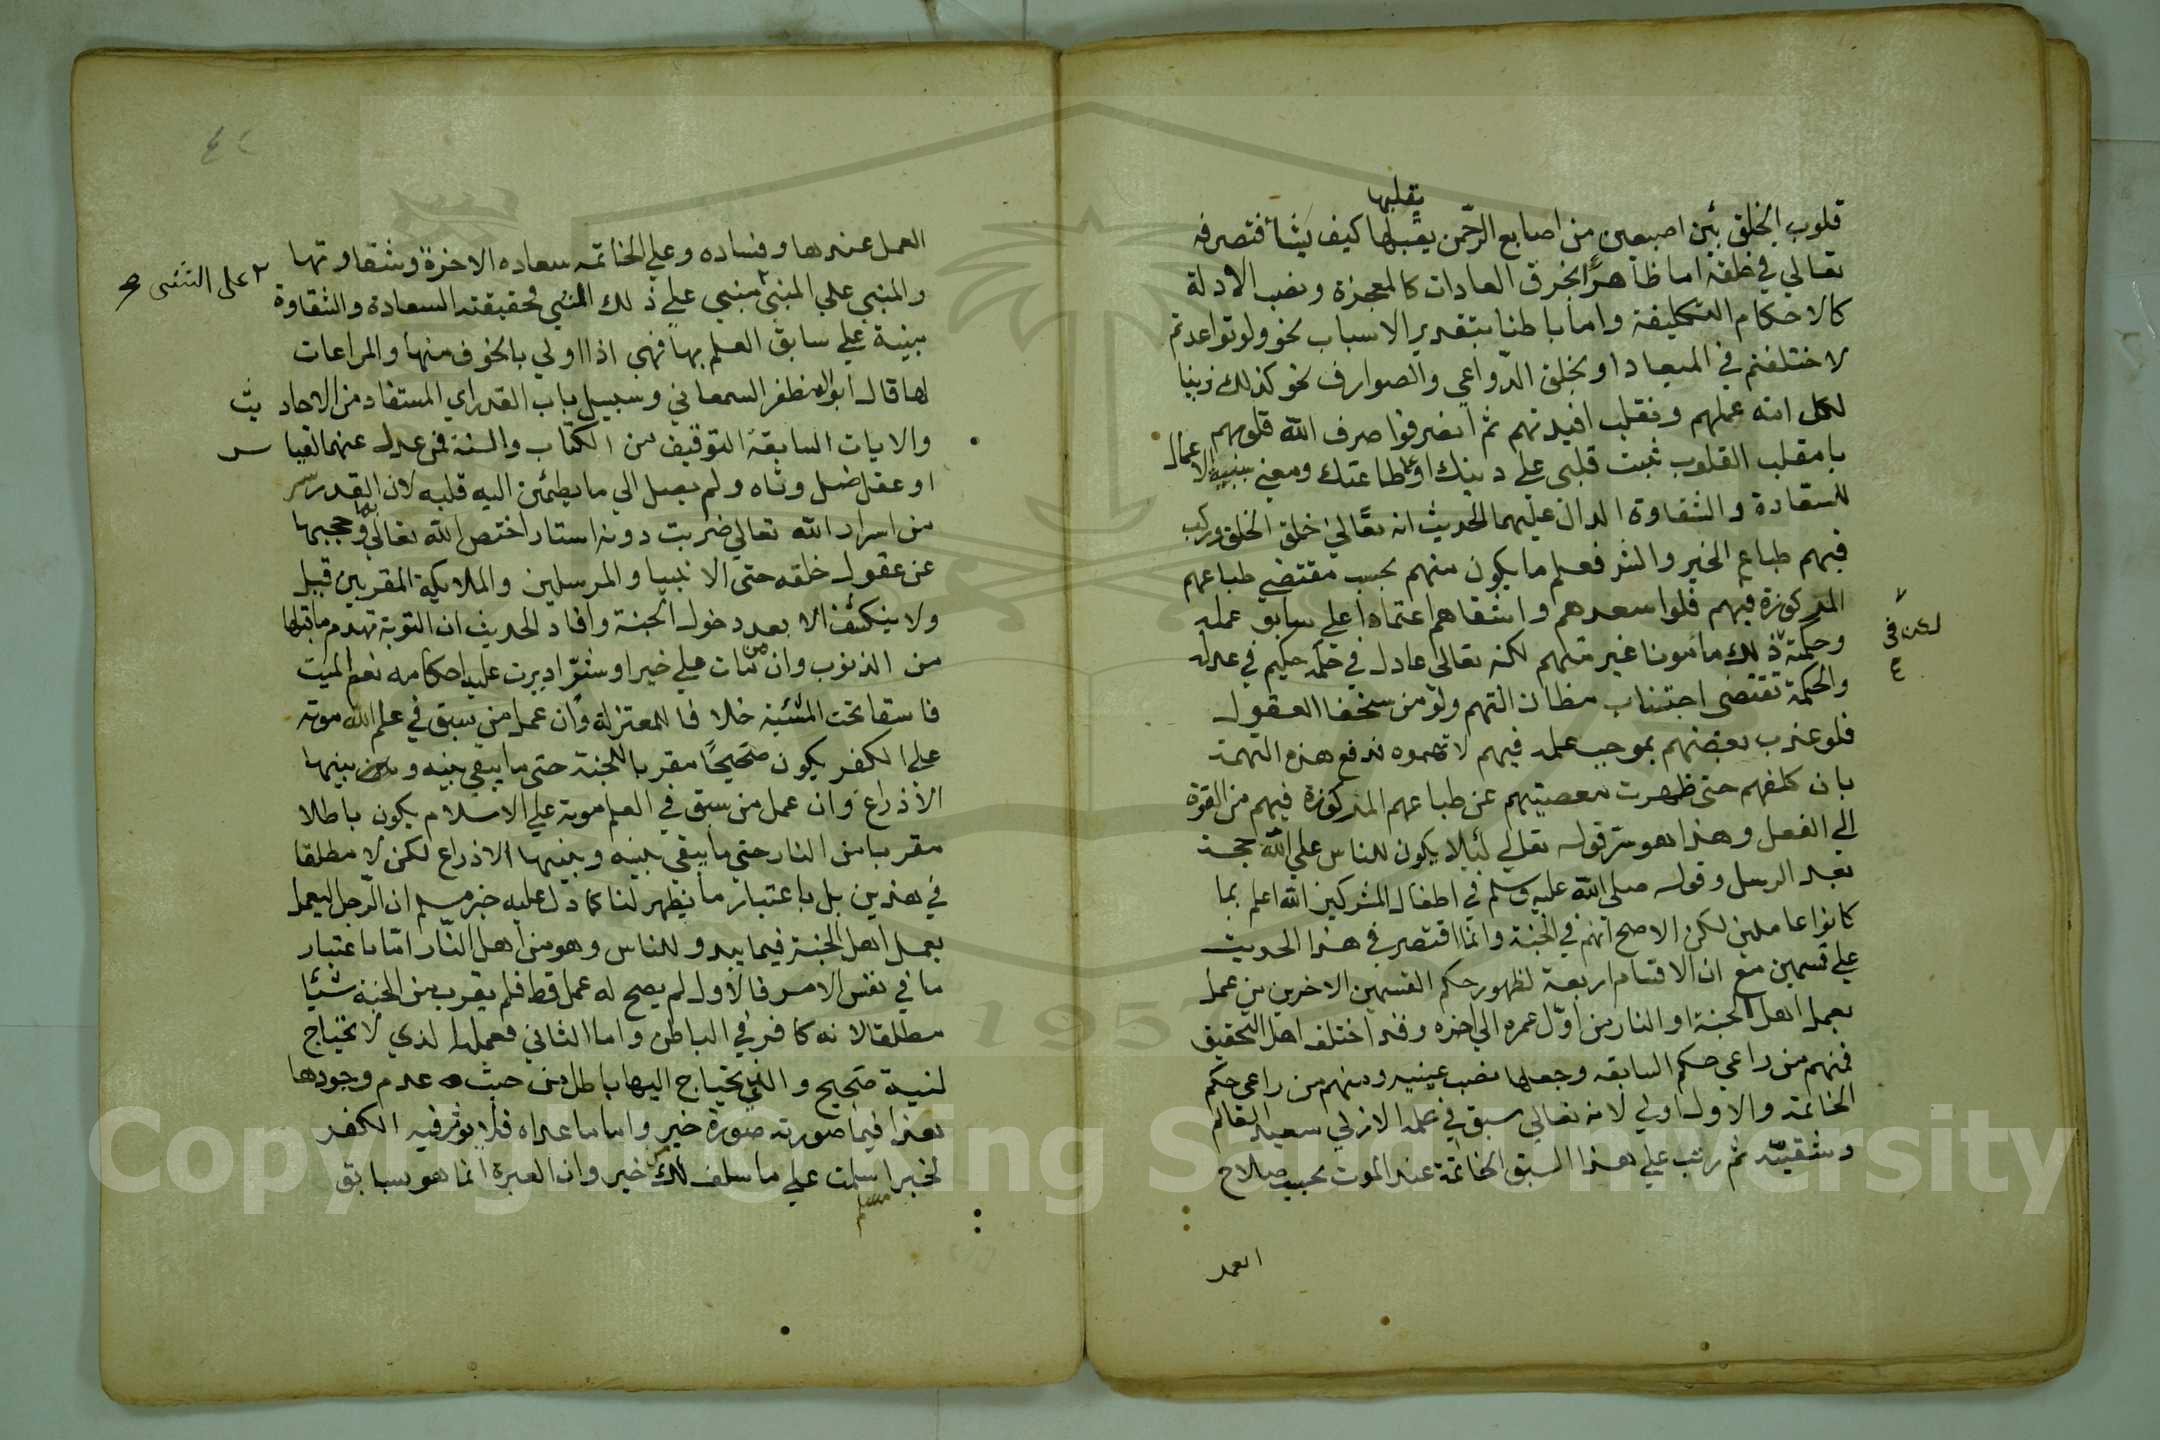 يقلبها
قلوب الخلق بين اصبعين من اصابع الرحمن يقبلها كيف يشأ فتصرفه
تعالي في خلقه اما ظاهرا بخرق العادات كالمعجزة ونصب الادلة
كالاحكام التكليفة واما باطنا بتقدير الاسباب نحو ولو تواعدتم
لاختلفتم في الميعاد او بخلق الدواعي والصوارف نحو كذلك زينا
لكل امة عملهم ونقلب افيدتهم ثم انصرفوا صرف الله قلوبهم
يا مقلب القلوب ثبت قلبي علي دينك او طاعتك ومعني الاعمال
للسعادة والشقاوة الدال عليهما الحديث انه تعالي خلق الخلق وركب
فيهم طباع الخير والشر فعلم ما يكون منهم بحسب مقتضي طباعهم
المذكورة فيهم فلو اسعدهم واشقاهم اعتمادا علي سابق علمه
وحكمة ذلك مامونا غير متهم لكنه تعالي عادل في حكمه حكيم في عدله
لعن في
٤
والحكمة تقتضي اجتناب مظان التهم ولو من سخفا العقول
فلو عذب بعضهم بموجب علمه فيهم لاتهموه فدفع هذه التهمة
بان كلفهم حتي ظهرت معصيتهم عن طباعهم المذكورة فيهم من القوة
الي الفعل وهذا هو سر قوله تعالي ليلا يكون للناس علي الله حجة
بعد الرسل وقوله صلي الله عليه وسلم في اطفال المشركين الله اعلم بما
كانوا عاملين لكن الاصح انهم في الجنة وانما اقتصر في هذا الحديث
علي قسمين مع ان الاقسام اربعة لظهور حكم القسمين الاخرين من عمل
بعمل اهل الجنة او النار من اول عمره الي اخره وقد اختلف اهل التحقيق
فمنهم من راعي حكم السابقه وجعلها نصب عينيه ومنهم من راعي حكم
الخاتمة والاول اولي لانه تعالي سبق في علمه الازلي سعيد العالم
وشقيه ثم رتب علي هذا السبق الخاتمة عند الموت بحسب صلاح
العمل
العمل عندها وفساده وعلي الخاتمه سعاده الاخرة وشقاوتها
والمبني علي المبني مبني علي ذلك المبني فحقيقته السعادة والشقاوة
علي الشي
مبنية علي سابق العلم بها فهي اذا اولي بالخوف منها والمراعات
لها قال ابو المظفر السمعاني وسبيل باب القدر اي المستفاد من الاحاديث
والايات السابقة التوقيف من الكتاب والسنة فمن عدل عنهما لقياس
او عقل ضل وتاه ولم يصل الي ما يطمئن اليه قلبه لان القدر سر
من اسرار الله تعالي ضربت دونه استار اختص الله تعالي بها وحجبها
عن عقول خلقه حتي الانبيا والمرسلين والملايكة المقربين قبل
ولا ينكشف الا بعد دخول الجنة وافاد الحديث ان التوبة تهدم ما قبلها
من الذنوب وان من مات علي خير او شر اديرت عليه احكامه نعم الميت
فاسقا تحت المشيئة خلافا للمعتزلة وان عمل من سبق في علم الله موته
علي الكفر يكون صحيحا مقربا للجنة حتي ما يبقي بينه وبينها
الا ذراع وان عمل من سبق في العلم موته علي الاسلام يكون باطلا
مقربا من النار حتي ما يبقي بينه وبينها الا ذراع لكن لا مطلقا
في هذين بل باعتبار ما يظهر لنا كما دل عليه خبر مسلم ان الرجل ليعمل
بعمل اهل الجنة فيما يبدو للناس وهو من اهل النار اما باعتبار
ما في نفس الامر فالاول لم يصح له عمل قط فلم يقرب من الجنة شيئا
مطلقا لانه كافر في الباطن واما الثاني فعمله الذي لا يحتاج
لنية صحيح والذي يحتاج اليها باطل من حيث عدم وجودها
هذا فيما صورته صورة خير واما ما عداه فلا يوثر فيه الكفر
لخبر اسلمت علي ما سلف لك من خير وان العبرة انما هو سابق
مسلم
Copyright © King Saud University
1957